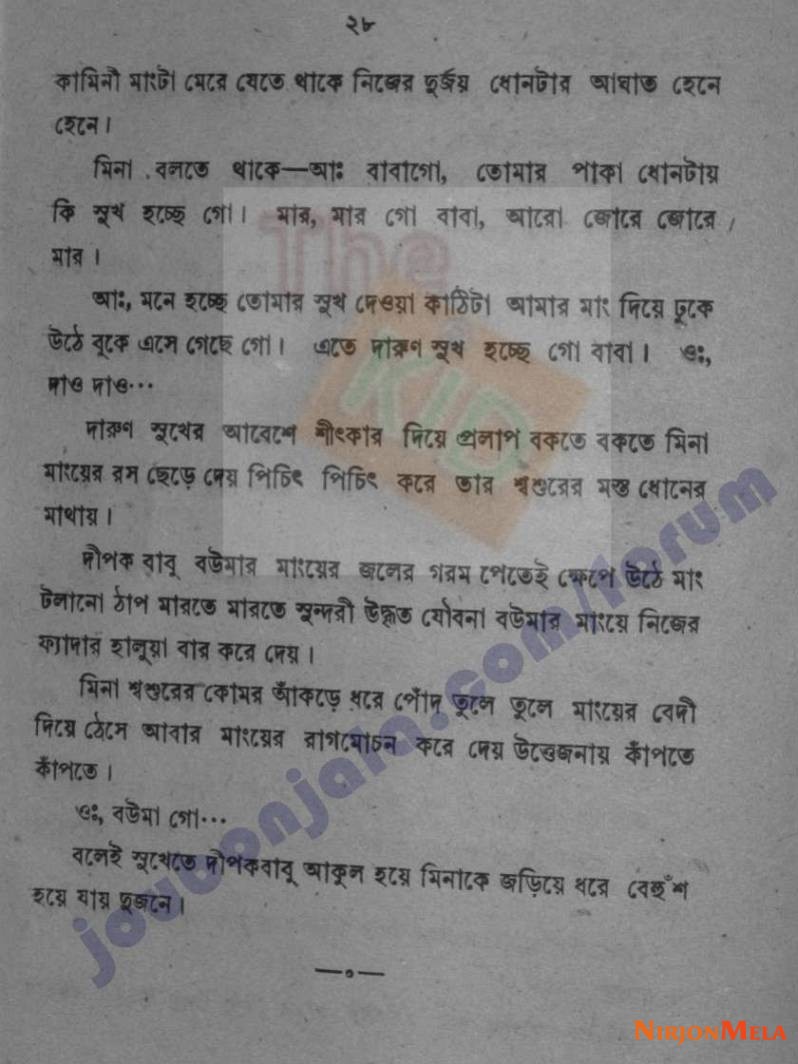 ২৮
কামিনী মাংটা মেরে যেতে থাকে নিজের দুর্জয় ধোনটার আঘাত হেনে
হেনে।
মিনা বলতে থাকে—আঃ বাবাগো, তোমার পাকা ধোনটায়
কি সুখ হচ্ছে গো। মার, মার গো বাবা, আরো জোরে জোরে
মার।
আঃ, মনে হচ্ছে তোমার সুখ দেওয়া কাঠিটা আমার মাং দিয়ে ঢুকে
উঠে বুকে এসে গেছে গো। এতে দারুণ সুখ হচ্ছে গো বাবা। ওঃ,
দাও দাও···
দারুণ সুখের আবেশে শীৎকার দিয়ে প্রলাপ বকতে বকতে মিনা
মাংয়ের রস ছেড়ে দেয় পিচিৎ পিচিৎ করে তার শ্বশুরের মস্ত ধোনের
মাথায়।
দীপক বাবু বউমার মাংয়ের জলের গরম পেতেই ক্ষেপে উঠে মাং
টলানো ঠাপ মারতে মারতে সুন্দরী উদ্ধত যৌবনা বউমার মাংয়ে নিজের
ফ্যাদার হালুয়া বার করে দেয়।
মিনা শ্বশুরের কোমর আঁকড়ে ধরে পোঁদ তুলে তুলে মাংয়ের বেদী
দিয়ে ঠেসে আবার মাংয়ের রাগমোচন করে দেয় উত্তেজনায় কাঁপতে
কাঁপতে।
ওঃ, বউমা গো···
বলেই সুখেতে দীপকবাবু আকুল হয়ে মিনাকে জড়িয়ে ধরে বেহুঁশ
হয়ে যায় দুজনে।
—০—
The
KID
joubonjala.com/forum
NIRJONMELA